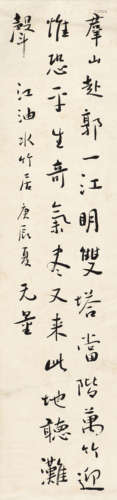 羣山赴郭一江明雙塔當階萬竹迎
惟恐平生奇氣盡又来此地聽灘
聲
江油水竹居庚辰夏无量